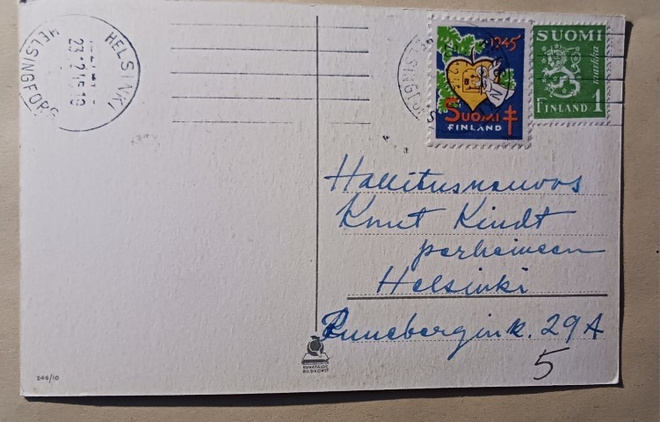 HELSINKI
23.12.45.18
HELSINGFORS
1945
SUOMI
FINLAND
SUOMI
markka
FINLAND 1
Hallitusneuvos
Knut Kindt
perheineen
Helsinki
Runebergink. 29 A
5
246/10